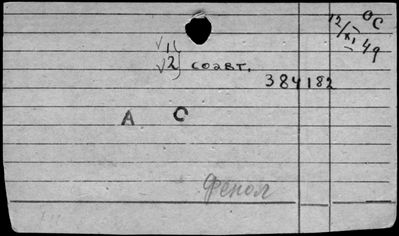 ОС
12/XI 49
√1)
√2) соавт.
384182
А С
Фенол